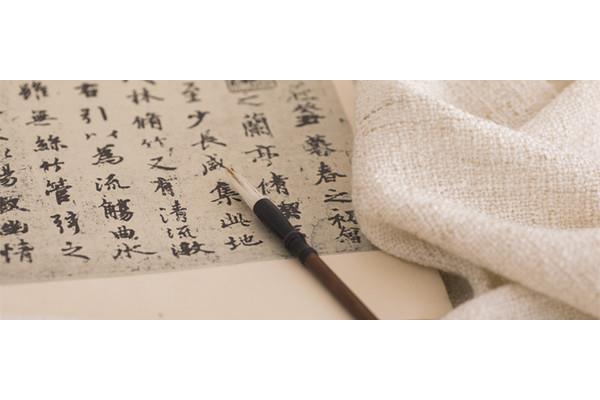 癸丑暮春之初會
之蘭亭脩禊
至少長咸集此地
林脩竹又有清流激
右引以為流觴曲水
雖無絲竹管弦之
暢敘幽情